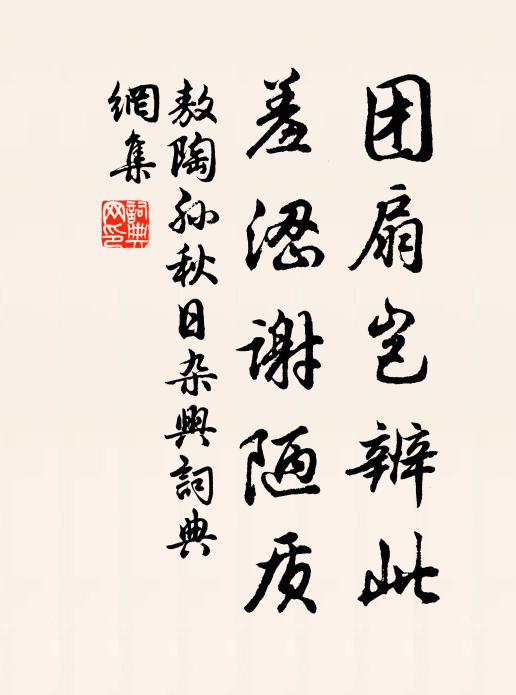 团扇岂辨此
羞涩謝陋质
敖陶孙秋日杂興詞典
網集
詞典网印